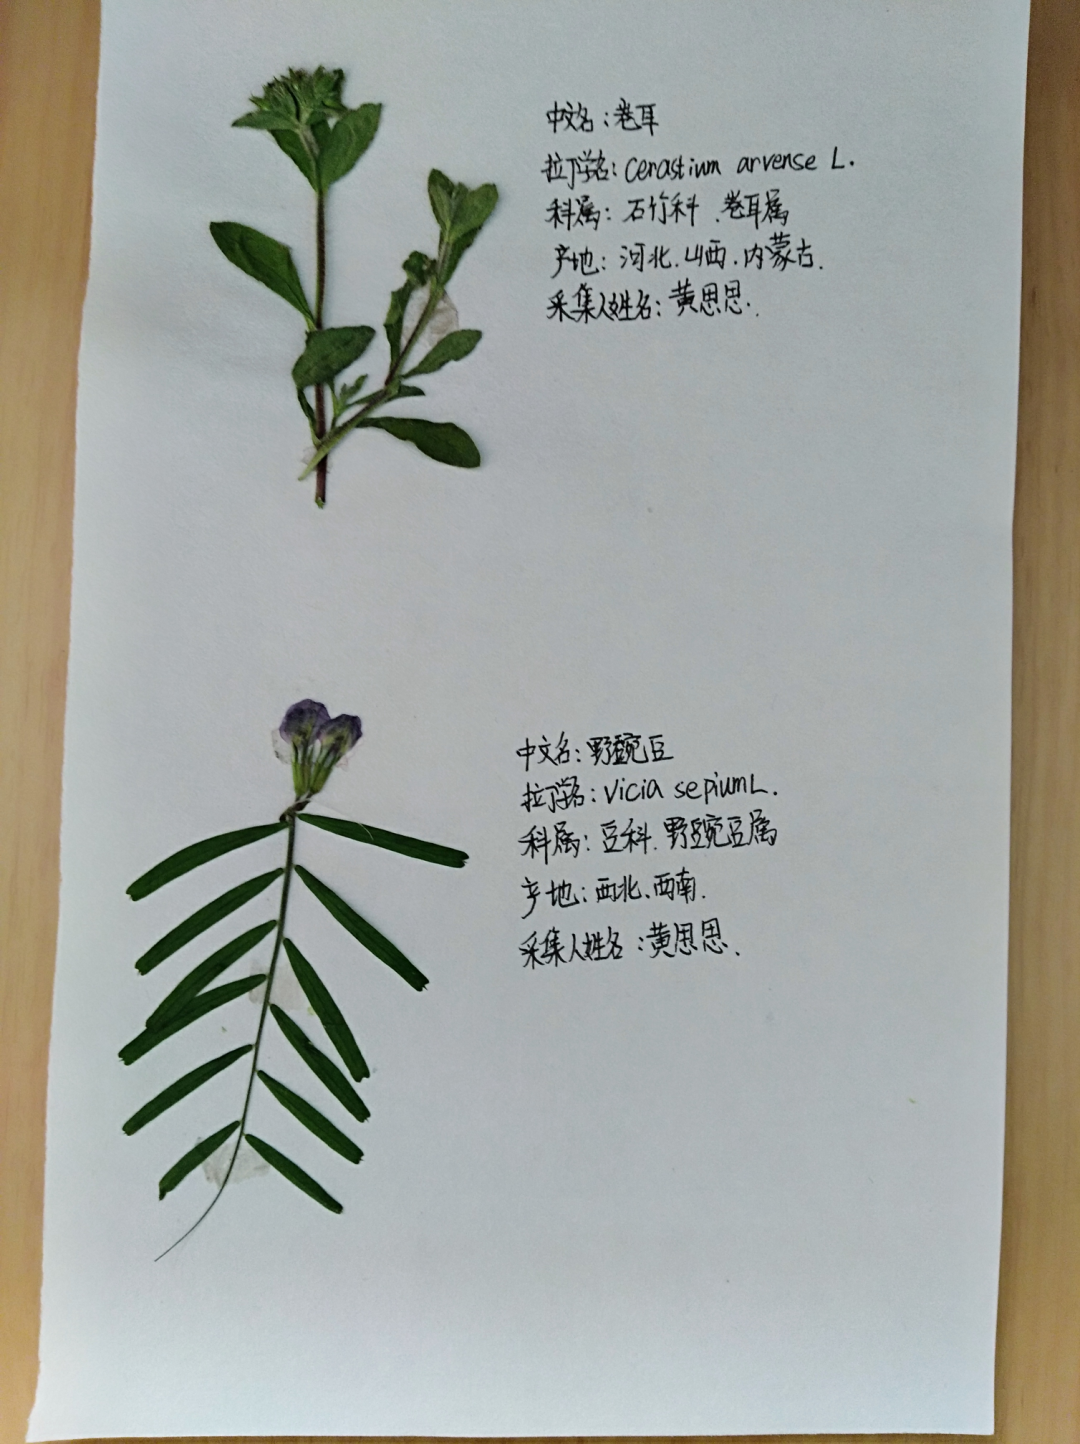 中文名：卷耳
拉丁学名：Cerastium arvense L.
科属：石竹科、卷耳属
产地：河北、山西、内蒙古.
采集人姓名：黄思思.
中文名：野豌豆
拉丁学名：Vicia sepium L.
科属：豆科、野豌豆属
产地：西北、西南.
采集人姓名：黄思思、